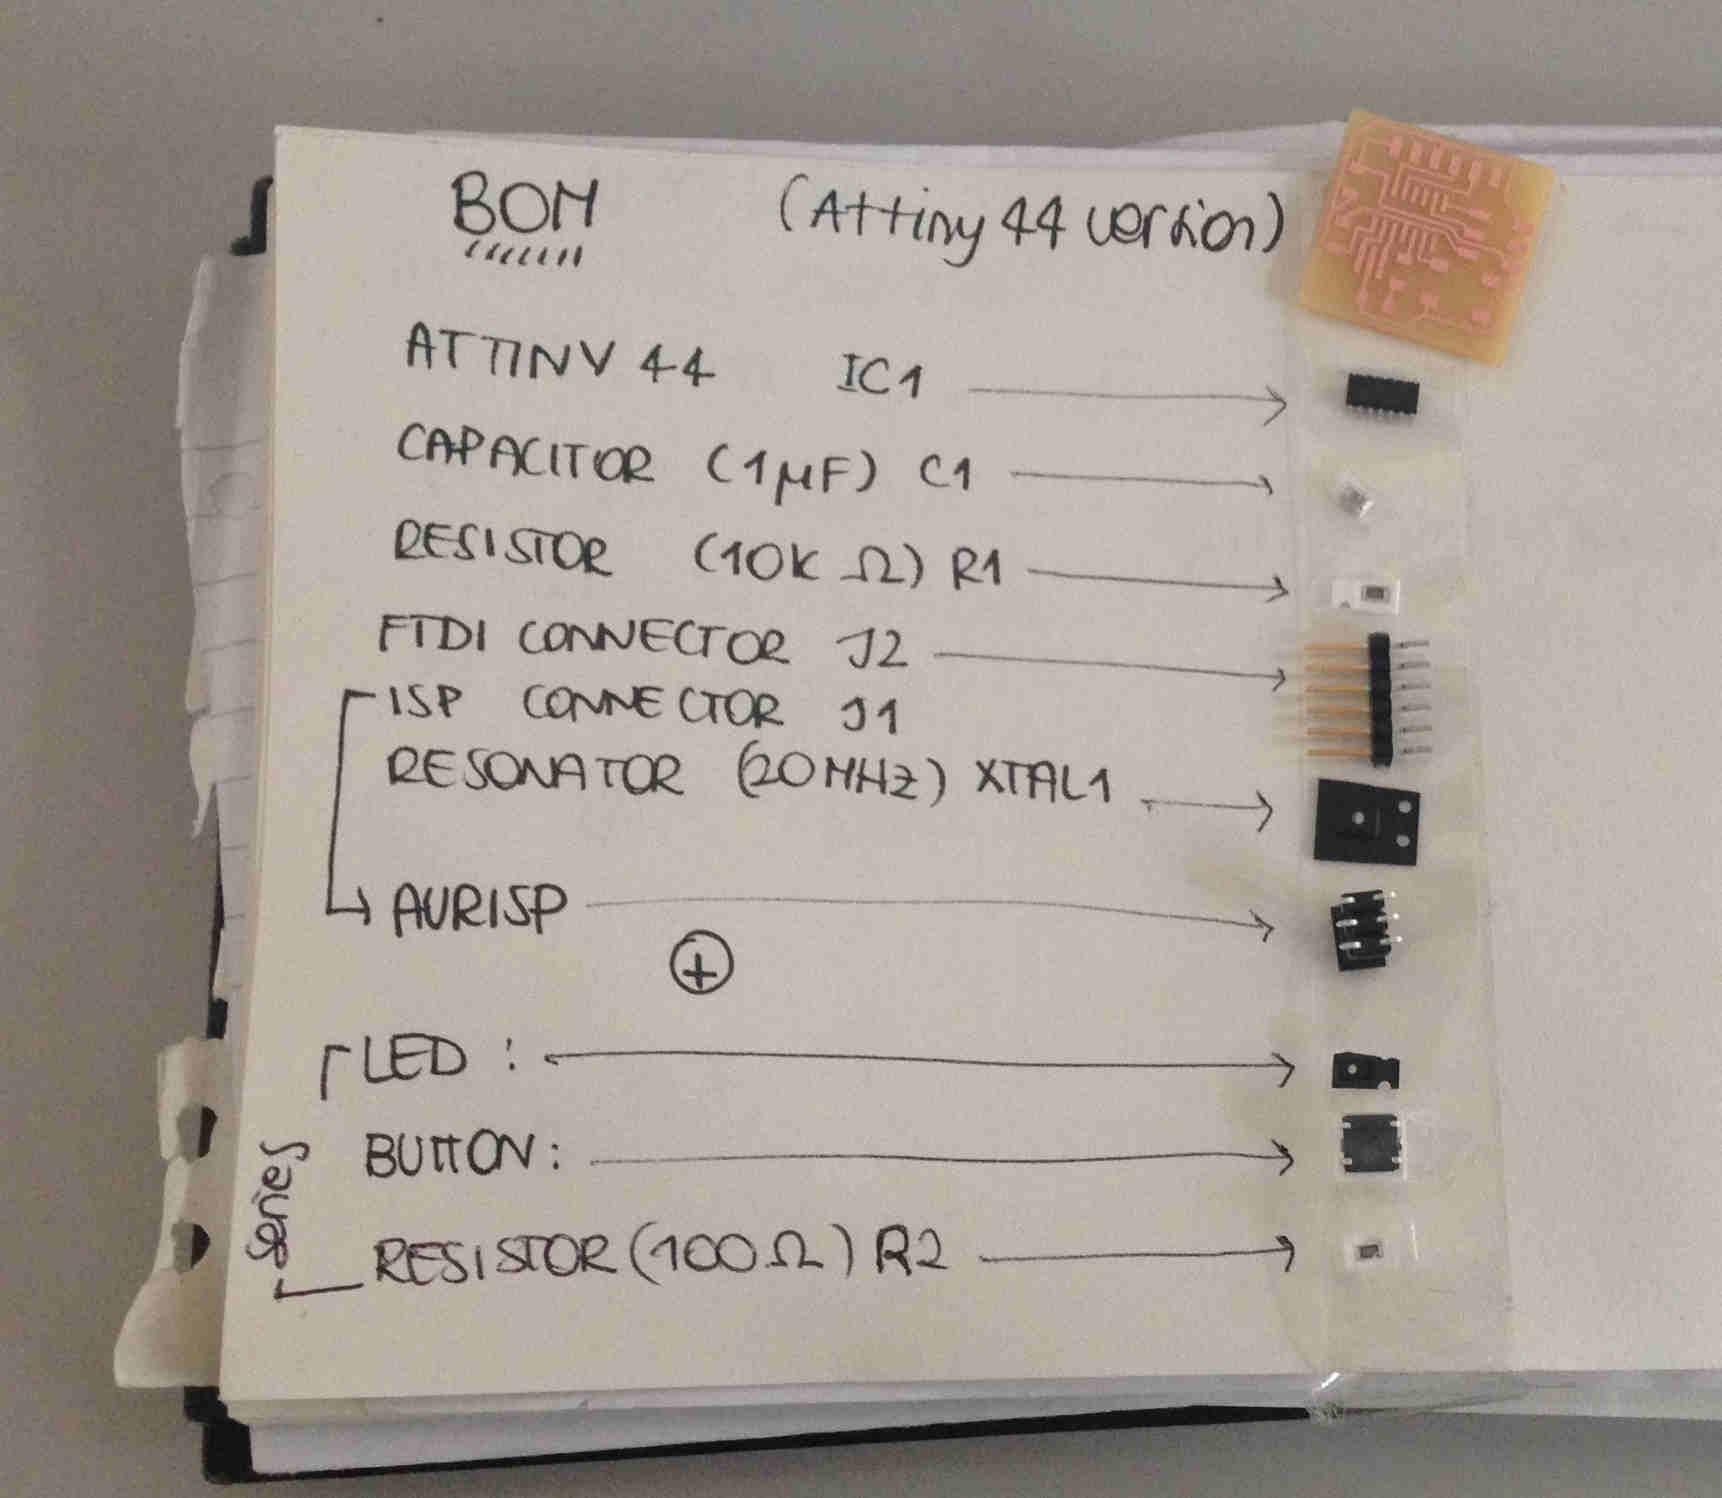 BOM (Attiny 44 version)
ATTINY 44 IC1
CAPACITOR (1μF) C1
RESISTOR (10K Ω) R1
FTDI CONNECTOR J2
ISP CONNECTOR J1
RESONATOR (20MHz) XTAL1
AVRISP
+
LED :
BUTTON :
series
RESISTOR (100Ω) R2